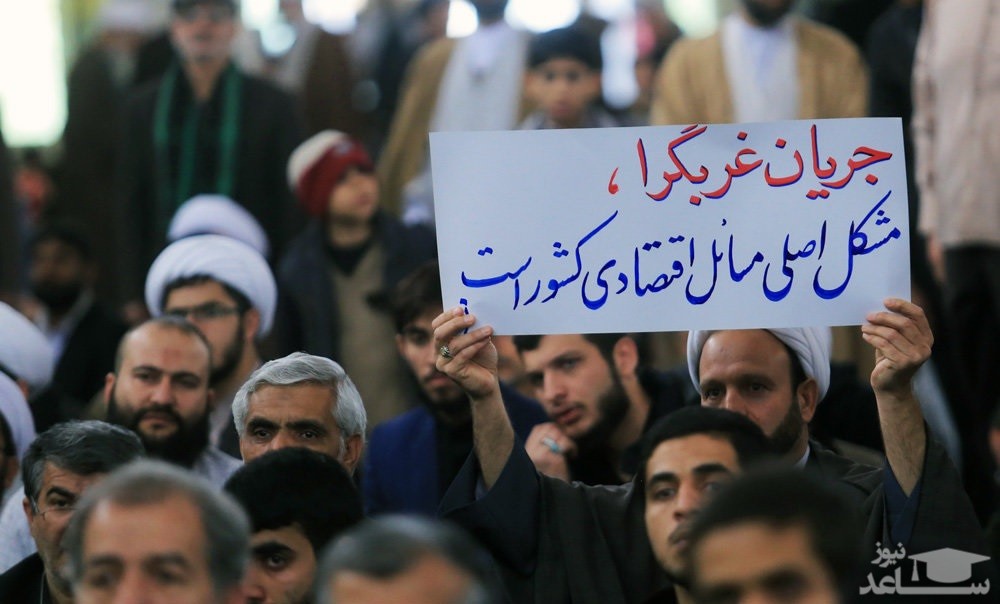 جریان غربگرا ،
مشکل اصلی مسائل اقتصادی کشور است
نیوز
ساعد